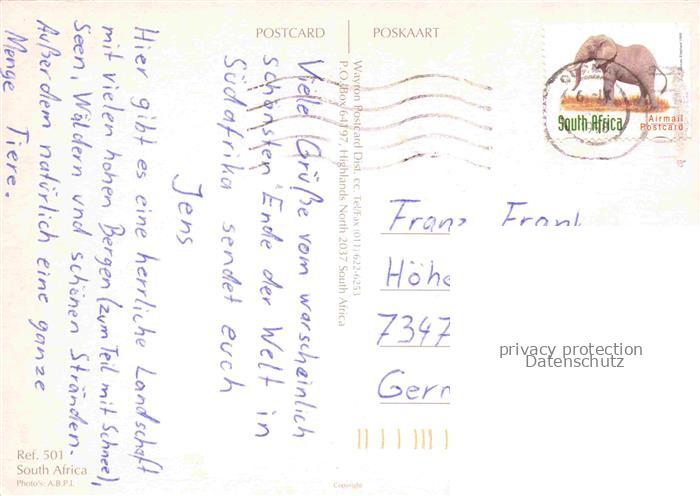 POSTCARD
POSKAART
South Africa
Airmail
Postcard
Viele Grüße vom warscheinlich
schönsten Ende der Welt in
Südafrika sendet euch
Jens
Hier gibt es eine herrliche Landschaft
mit vielen hohen Bergen (zum Teil mit Schnee),
Seen, Wäldern und schönen Stränden.
Außerdem natürlich eine ganze
Menge Tiere.
Wayton Postcard Dist. cc. Tel/Fax (011) 622-6253
P.O. Box 64197, Highlands North 2037 South Africa
Franz Frank
Höhe
7347
Germ
privacy protection
Datenschutz
Ref. 501
South Africa
Photo's: A.B.P.L.
Copyright